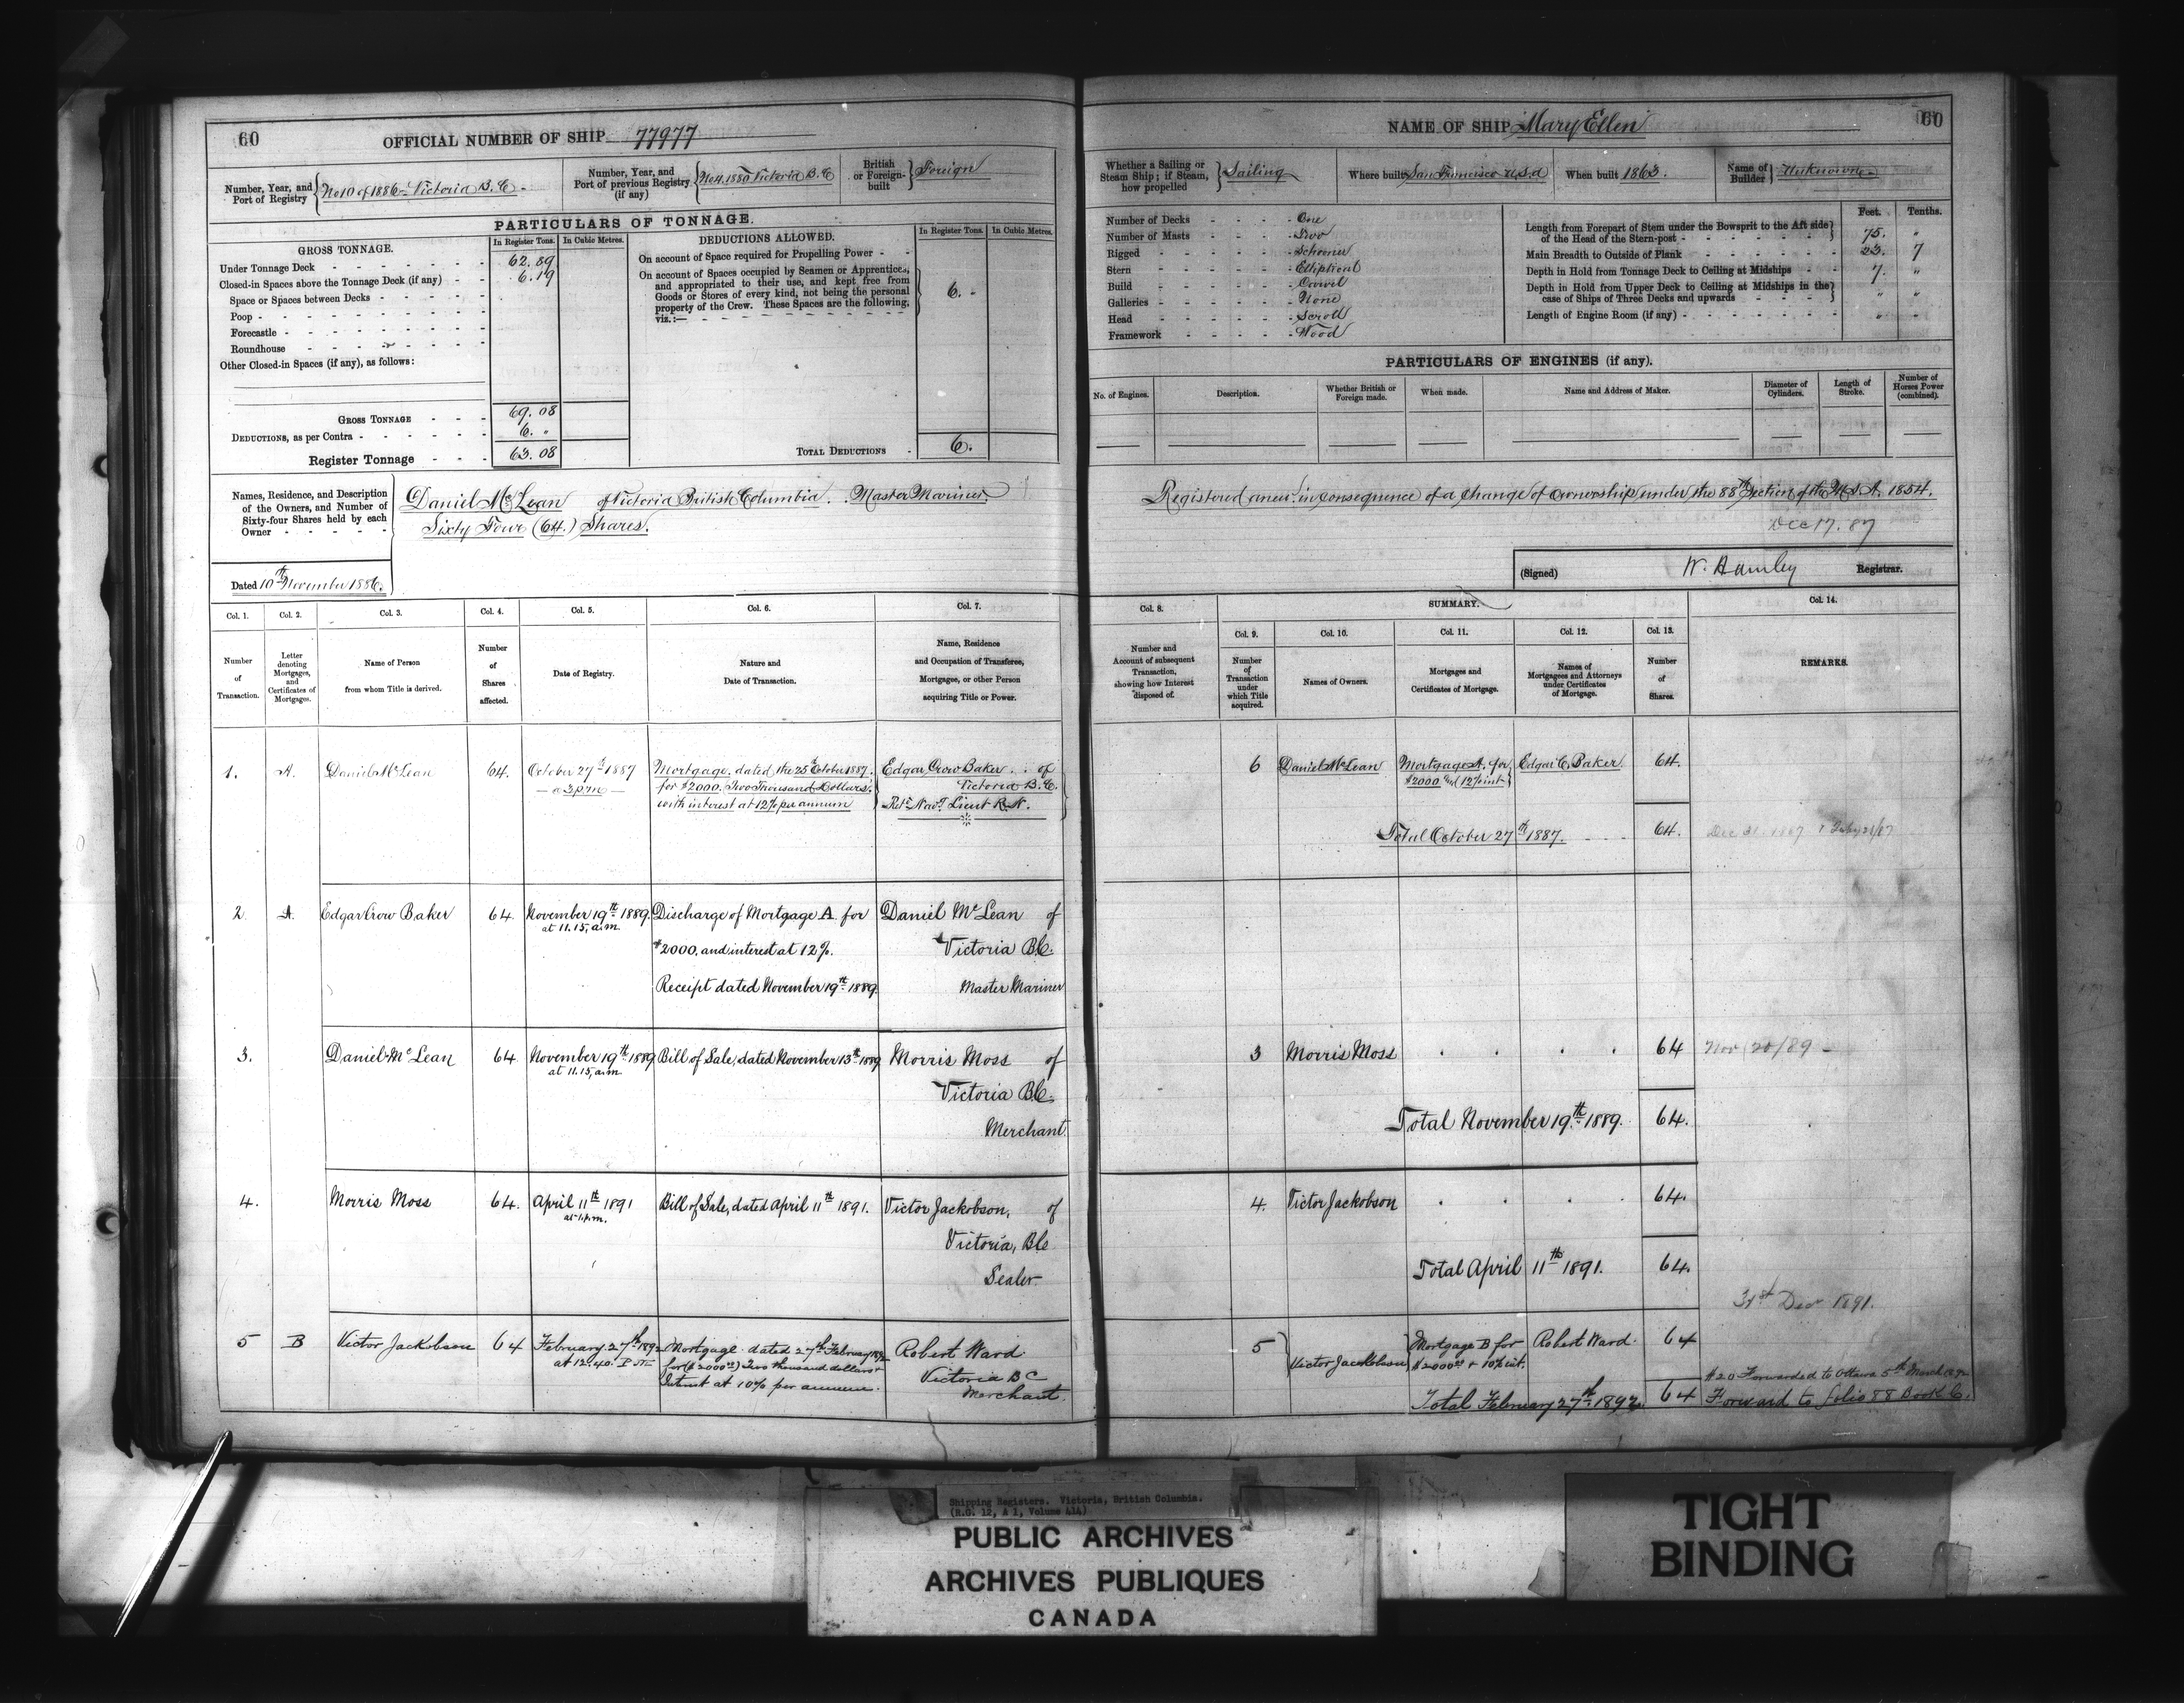 60
OFFICIAL NUMBER OF SHIP 77977
Number, Year, and Port of Registry } No 10 of 1886 - Victoria B.C. -
Number, Year, and Port of previous Registry (if any) } No 4. 1880 Victoria B.C
British or Foreign-built } Foreign
PARTICULARS OF TONNAGE.
GROSS TONNAGE.
In Register Tons.
In Cubic Metres.
Under Tonnage Deck - 62.89
Closed-in Spaces above the Tonnage Deck (if any) - 6.19
Space or Spaces between Decks -
Poop -
Forecastle -
Roundhouse -
Other Closed-in Spaces (if any), as follows:
GROSS TONNAGE - 69.08
DEDUCTIONS, as per Contra - 6. "
Register Tonnage - 63.08
DEDUCTIONS ALLOWED.
In Register Tons.
In Cubic Metres.
On account of Space required for Propelling Power -
On account of Spaces occupied by Seamen or Apprentices,
and appropriated to their use, and kept free from
Goods or Stores of every kind, not being the personal
property of the Crew. These Spaces are the following,
viz.:— 6. -
TOTAL DEDUCTIONS - 6.
Names, Residence, and Description
of the Owners, and Number of
Sixty-four Shares held by each
Owner
Daniel McLean of Victoria British Columbia. Master Mariner.
Sixty Four (64.) Shares.
Dated 10th November 1886.
Col. 1. Number of Transaction.
Col. 2. Letter denoting Mortgages, and Certificates of Mortgages.
Col. 3. Name of Person from whom Title is derived.
Col. 4. Number of Shares affected.
Col. 5. Date of Registry.
Col. 6. Nature and Date of Transaction.
Col. 7. Name, Residence and Occupation of Transferee, Mortgage, or other Person acquiring Title or Power.
1. A. Daniel McLean 64. October 27th 1887
- a 3 p.m -
Mortgage, dated the 25th October 1887.
for $2000. Two Thousand Dollars.
with interest at 12% per annum
Edgar Crow Baker of
Victoria B.C.
Retd Navl Lieut R.N.
2. A. Edgar Crow Baker 64. November 19th 1889.
at 11.15, a.m.
Discharge of Mortgage A for
$2000. and interest at 12%.
Receipt dated November 19th 1889.
Daniel McLean of
Victoria B.C.
Master Mariner
3. Daniel McLean 64 November 19th 1889
at 11.15, a.m
Bill of Sale, dated November 13th 1889
Morris Moss of
Victoria B.C.
Merchant
4. Morris Moss 64. April 11th 1891
at 1 p.m.
Bill of Sale, dated April 11th 1891.
Victor Jackobson, of
Victoria, B.C
Sealer
5 B Victor Jackobson 64 February 27th 1892
at 12.40. P.M
Mortgage dated 27th February 1892
for ($2000.00) Two thousand dollars &
Interest at 10% per annum.
Robert Ward
Victoria B C
Merchant.
NAME OF SHIP Mary Ellen
60
Whether a Sailing or Steam Ship; if Steam, how propelled } Sailing
Where built San Francisco U.S.A
When built 1863.
Name of Builder } Unknown
Number of Decks - One
Number of Masts - Two
Rigged - Schooner
Stern - Elliptical
Build - Carvel
Galleries - None
Head - Scroll
Framework - Wood
Feet. Tenths.
Length from Forepart of Stem under the Bowsprit to the Aft side of the Head of the Stern-post - 75. "
Main Breadth to Outside of Plank - 23. 7
Depth in Hold from Tonnage Deck to Ceiling at Midships - 7. "
Depth in Hold from Upper Deck to Ceiling at Midships in the case of Ships of Three Decks and upwards - " "
Length of Engine Room (if any) - " "
PARTICULARS OF ENGINES (if any).
No. of Engines.
Description.
Whether British or Foreign made.
When made.
Name and Address of Maker.
Diameter of Cylinders.
Length of Stroke.
Number of Horses Power (combined).
Registered anew in consequence of a change of ownership under the 88th Section of the M.S.A. 1854.
Dec 17. 87
(Signed) W. Hamley Registrar.
Col. 8. Number and Account of subsequent Transaction, showing how Interest disposed of.
SUMMARY.
Col. 9. Number of Transaction under which Title acquired.
Col. 10. Names of Owners.
Col. 11. Mortgages and Certificates of Mortgage.
Col. 12. Names of Mortgagees and Attorneys under Certificates of Mortgage.
Col. 13. Number of Shares.
Col. 14. REMARKS.
6 Daniel McLean Mortgage A. for Edgar C. Baker 64.
$2000 and 12% int
Total October 27th 1887. 64.
3 Morris Moss 64 Nov 20/89 -
Total November 19th 1889. 64.
4. Victor Jackobson 64.
Total April 11th 1891. 64.
31st Decr 1891.
5 Victor Jackobson Mortgage B for Robert Ward 64
$2000.00 & 10% int.
$20 Forwarded to Ottawa 5th March 1892
Total February 27th 1892. 64 Forward to folio 88 Book C.
Shipping Registers. Victoria, British Columbia.
(R.G. 12, A 1, Volume 414)
PUBLIC ARCHIVES
ARCHIVES PUBLIQUES
CANADA
TIGHT
BINDING